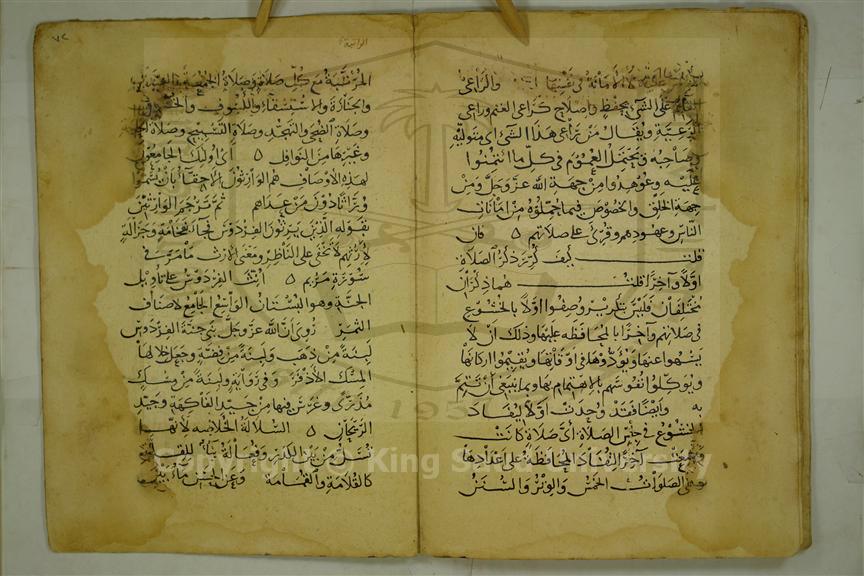 والراعي
القائم على الشيء بحفظ واصلاح كراعي الغنم وراعي
الرعية ويقال من راعي هذا الشيء اي متوليه
وصاحبه ويحتمل العموم في كل ما ائتمنوا
عليه وعوهدوا من جهة الله عز وجل ومن
جهة الخلق والخصوص فيما حملوه من امانات
الناس وعهودهم وقرئ على صلاتهم فان
قلت كيف كرر ذكر الصلاة
اولا وآخرا قلت هما ذكران
مختلفان فليس بتكرير وصفوا اولا بالخشوع
في صلاتهم وآخرا بالمحافظة عليها وذلك ان لا
يسهوا عنها ويؤدوها في اوقاتها ويقيموا اركانها
ويوكلوا نفوسهم بالاهتمام بها وبما ينبغي ان تتم
به وايضا فقد وحدت اولا ليفاد
الخشوع في جنس الصلاة اي صلاة كانت
وجمعت آخرا لتفاد المحافظة على اعدادها
وهي الصلوات الخمس والوتر والسنن
٧٢
المرتبة مع كل صلاة وصلاة الجمعة والعيدين
والجنازة والاستسقاء والكسوف والخسوف
وصلاة الضحى والتهجد وصلاة التسبيح وصلاة
وغيرها من النوافل اي اولئك الجامعون
لهذه الاوصاف هم الوارثون الاحقاء بان يسموا
وراثا دون من عداهم ثم ترجم الوارثين
بقوله الذين يرثون الفردوس فجاء بفخامة وجزالة
لارثهم لا تخفى على الناظر ومعنى الارث ما مر في
سورة مريم انث الفردوس على تاويل
الجنة وهو البستان الواسع الجامع لاصناف
الثمر روي ان الله عز وجل بنى جنة الفردوس
لبنة من ذهب ولبنة من فضة وجعل خلالها
المسك الاذفر وفي رواية ولبنة من مسك
مذري وغرس فيها من جيد الفاكهة وجيد
الريحان السلالة الخلاصة لانها
تسل من بين الكدر وفعالة بناء للقلة
كالقلامة والقمامة وعن الحسن ماء بين
Copyright © King Saud University
1957